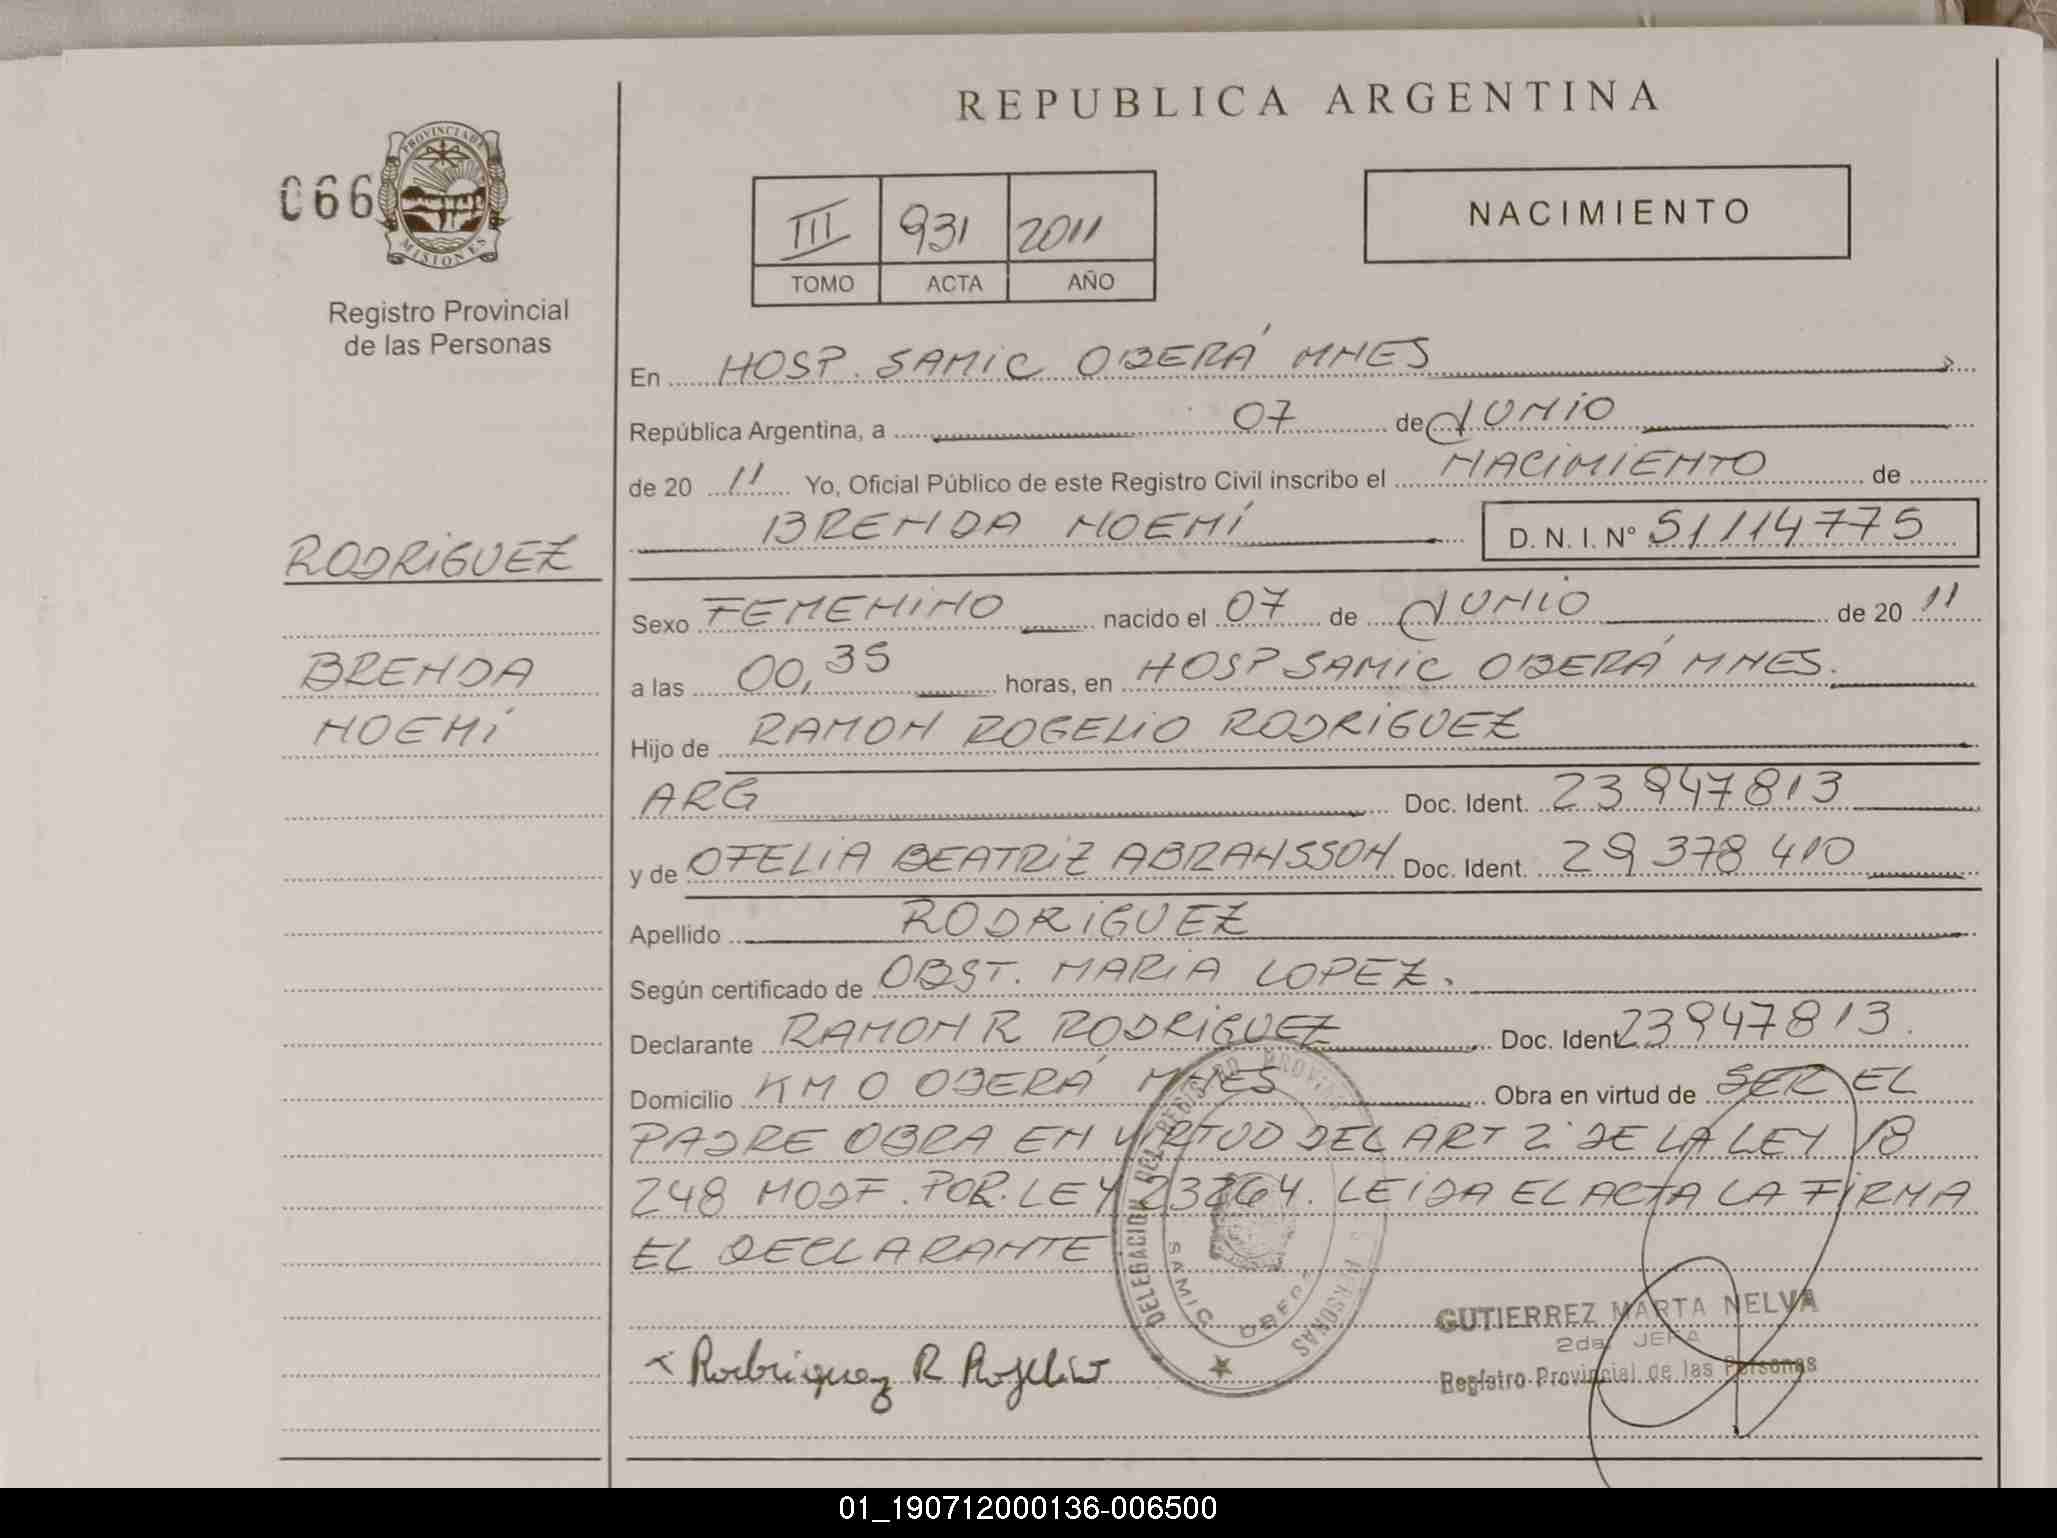 REPUBLICA ARGENTINA
066
PROVINCIA DE
MISIONES
Registro Provincial
de las Personas
III 931 2011
TOMO ACTA AÑO
NACIMIENTO
En HOSP. SAMIC OBERÁ MNES
República Argentina, a 07 de JUNIO
de 20 11 Yo, Oficial Público de este Registro Civil inscribo el NACIMIENTO de
BRENDA NOEMÍ D. N. I. Nº 51114775
RODRIGUEZ
BRENDA
NOEMÍ
Sexo FEMENINO nacido el 07 de JUNIO de 20 11
a las 00,35 horas, en HOSP SAMIC OBERÁ MNES.
Hijo de RAMON ROGELIO RODRIGUEZ
ARG Doc. Ident. 23947813
y de OFELIA BEATRIZ ABRAHSSON Doc. Ident. 29378410
Apellido RODRIGUEZ
Según certificado de OBST. MARIA LOPEZ.
Declarante RAMON R RODRIGUEZ Doc. Ident 23947813.
Domicilio KM 0 OBERÁ MNES Obra en virtud de SER EL
PADRE OBRA EN VIRTUD DEL ART 2º DE LA LEY 18
248 MODF. POR. LEY 23264. LEIDA EL ACTA LA FIRMA
EL DECLARANTE
DELEGACION DEL REGISTRO PROVINCIAL DE LAS PERSONAS
SAMIC OBERA
x Rodriguez R Rogelio
GUTIERREZ MARTA NELVA
2da. JEFA
Registro Provincial de las Personas
01_190712000136-006500